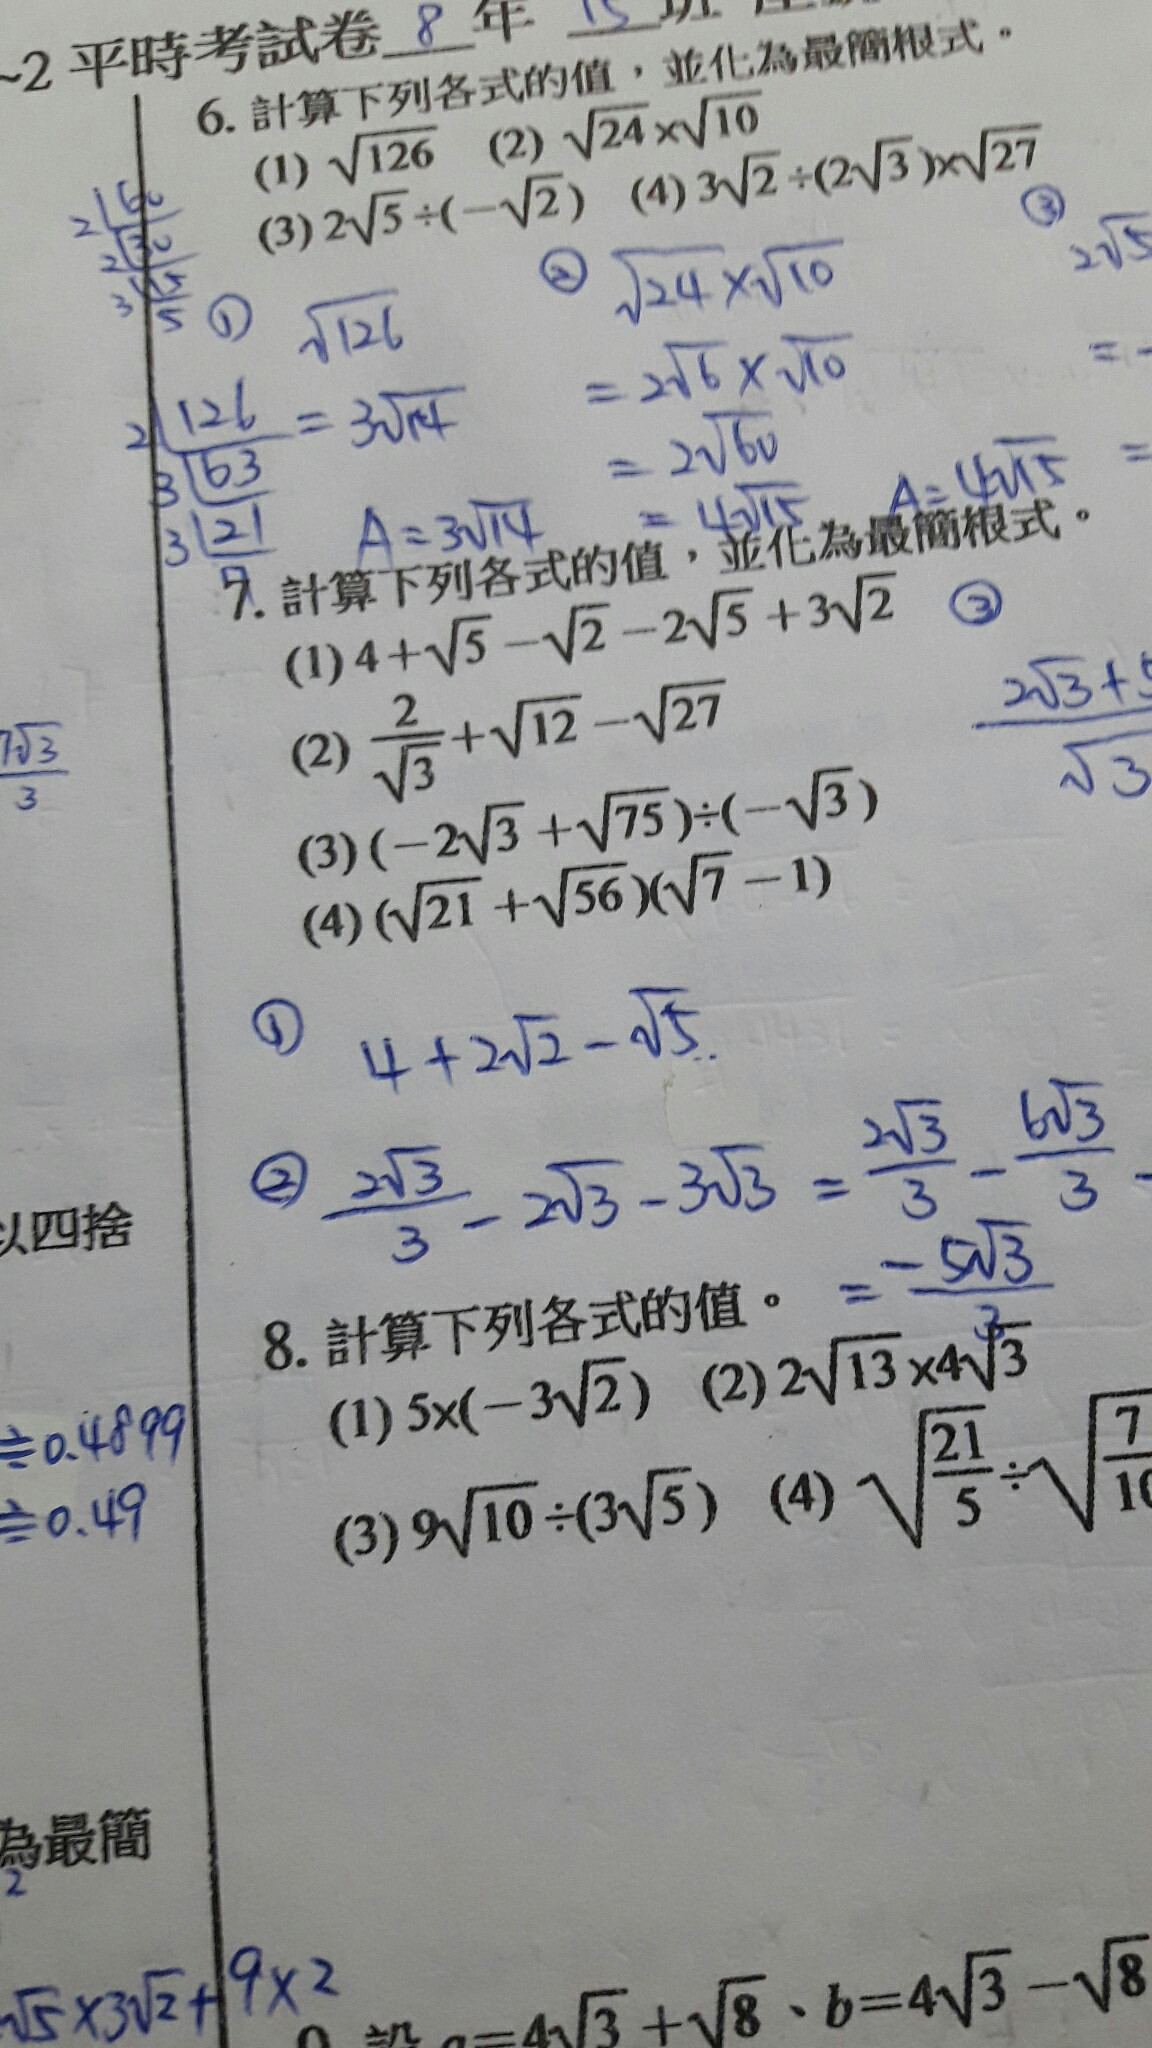 ~2 平時考試卷 8 年 15 班
6. 計算下列各式的值，並化為最簡根式。
(1) √126 (2) √24×√10
(3) 2√5÷(－√2) (4) 3√2÷(2√3)×√27
2 60
2 30
3 15
5
① √126
= 3√14
A = 3√14
2 126
3 63
3 21
7
② √24×√10
= 2√6×√10
= 2√60
= 4√15 A = 4√15
③ 2√5
= -
=
7. 計算下列各式的值，並化為最簡根式。
(1) 4＋√5－√2－2√5＋3√2
(2) 2/√3＋√12－√27
(3) (－2√3＋√75)÷(－√3)
(4) (√21＋√56)(√7－1)
③ (2√3+5
√3
7√3/3
① 4+2√2-√5
② 2√3/3 - 2√3 - 3√3 = 2√3/3 - 6√3/3 -
= -5√3/3
以四捨
8. 計算下列各式的值。
(1) 5×(－3√2) (2) 2√13×4√3
(3) 9√10÷(3√5) (4) √21/5÷√7/10
≒0.4899
≒0.49
為最簡
2
√5×3√2+9×2
9. 設 a=4√3＋√8、b=4√3－√8